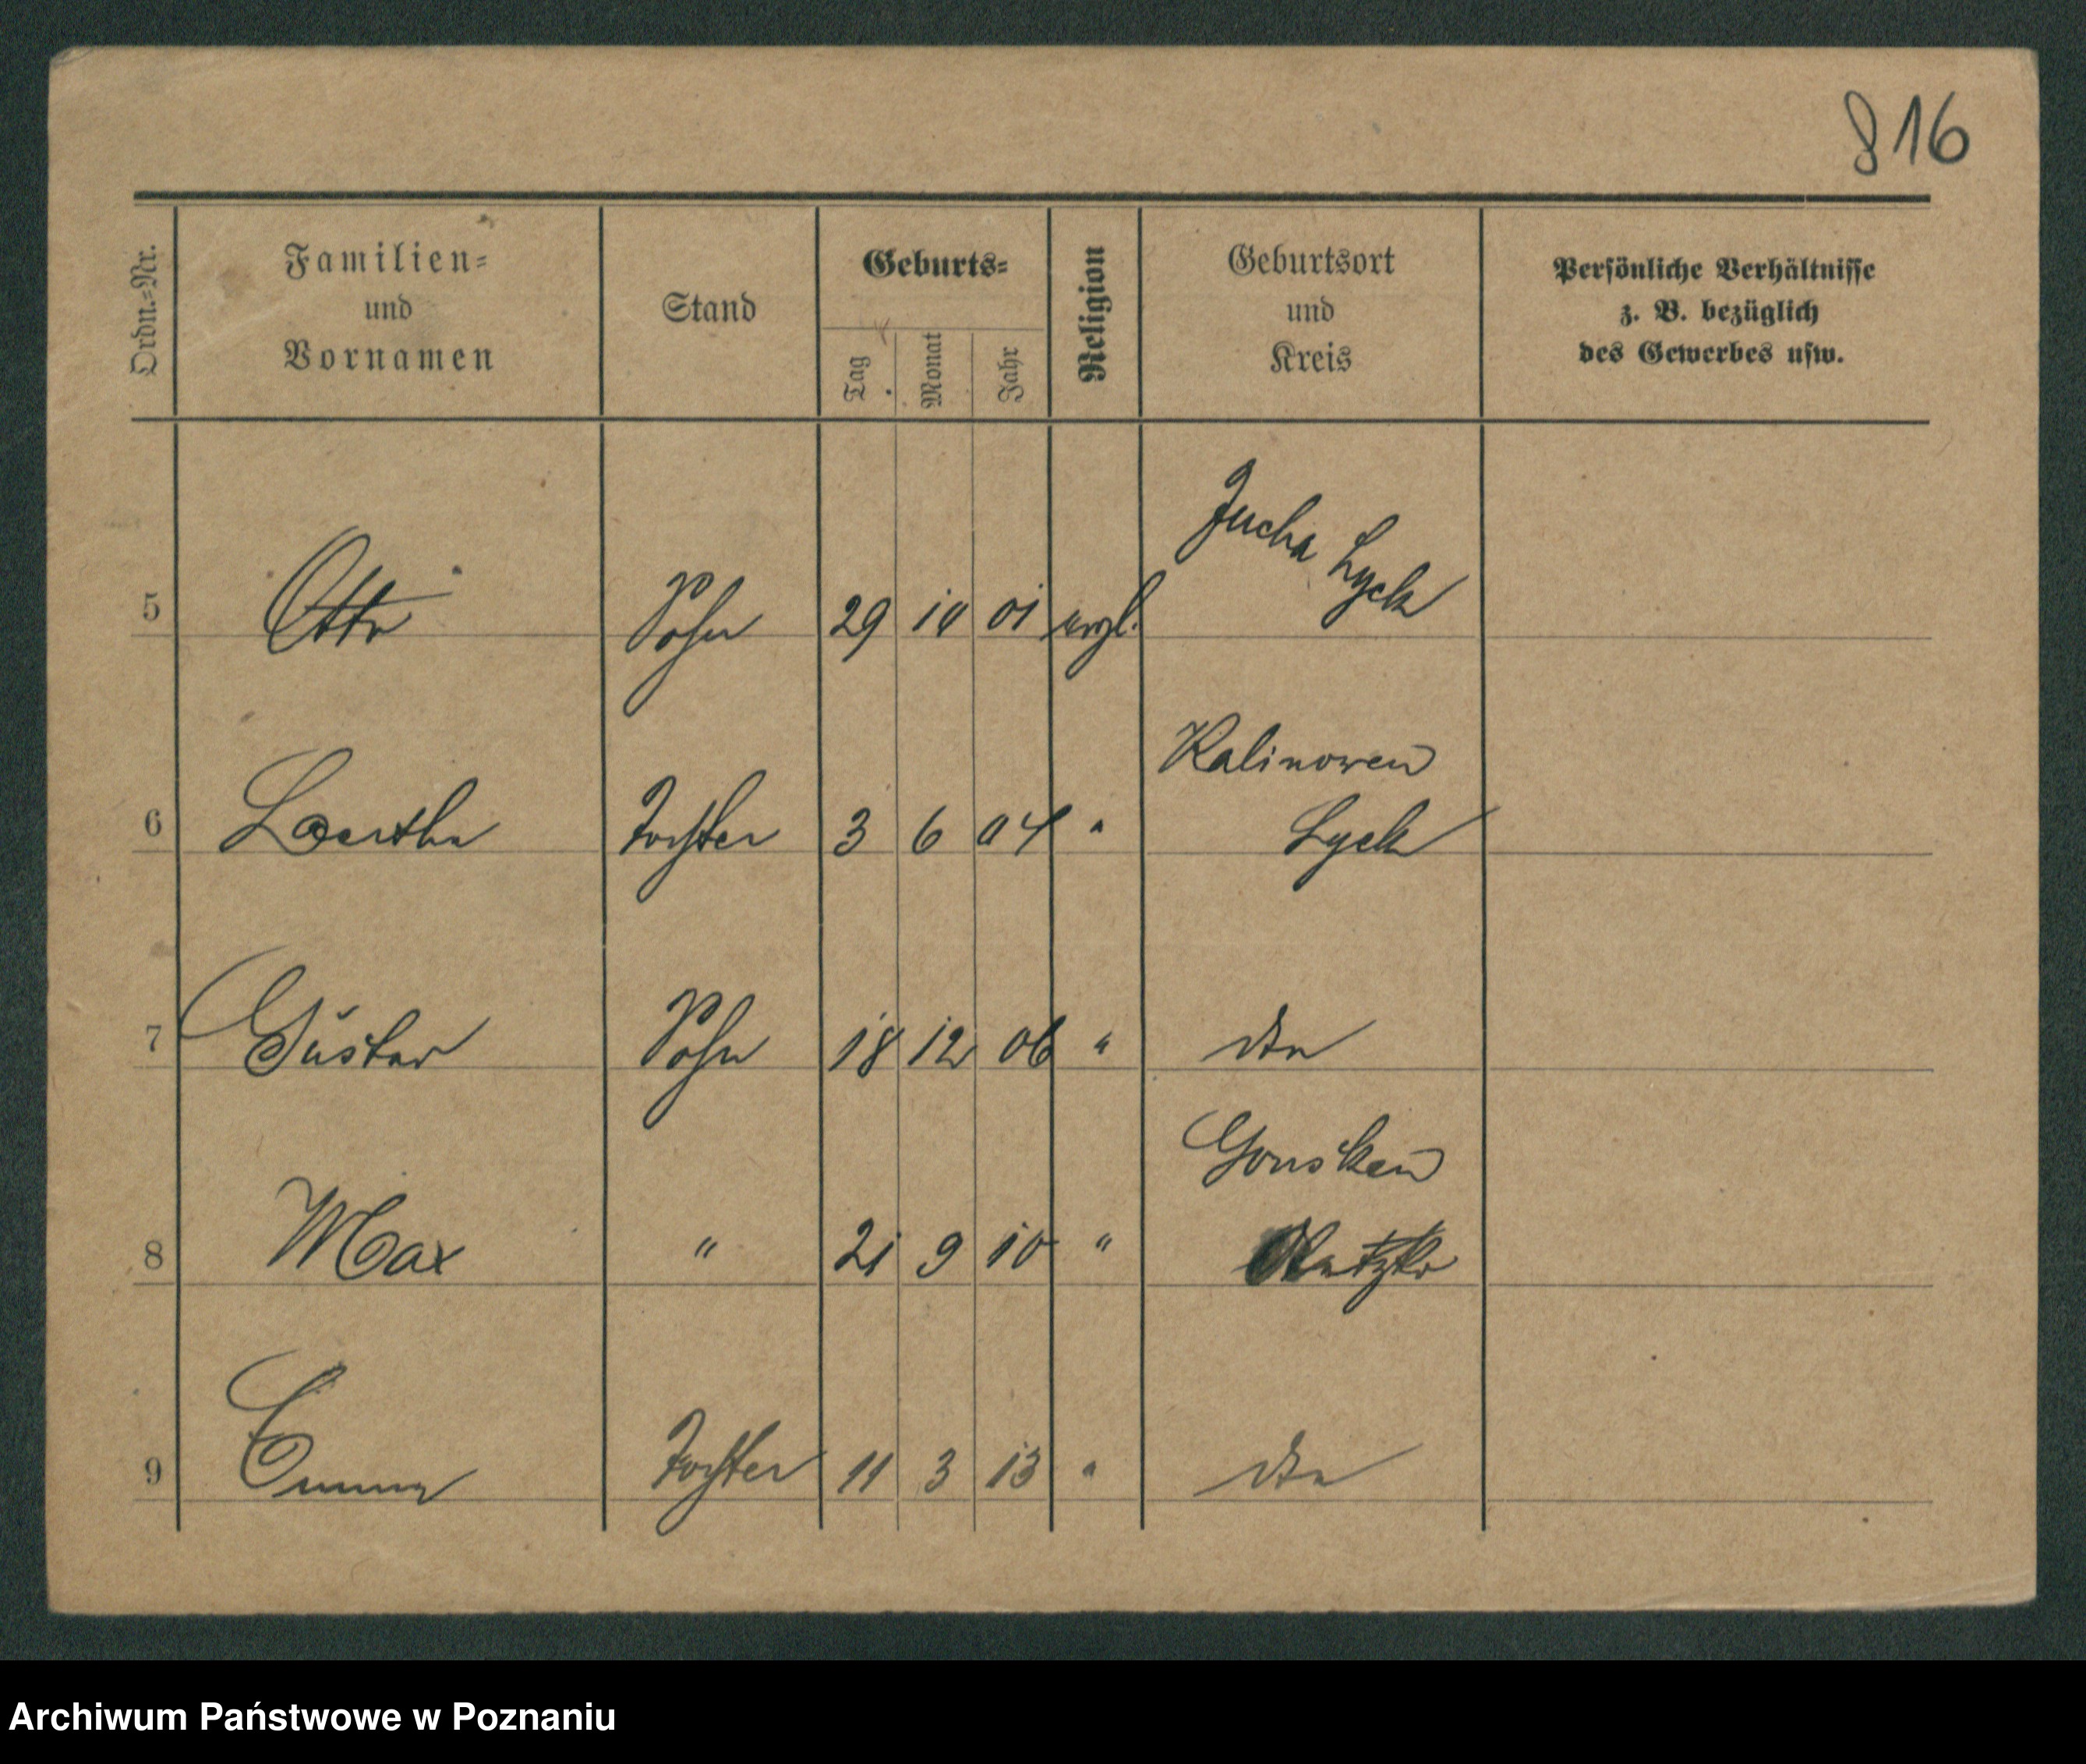 816
Ordn.-Nr.
Familien-
und
Vornamen
Stand
Geburts-
Tag
Monat
Jahr
Religion
Geburtsort
und
Kreis
Persönliche Verhältnisse
z. B. bezüglich
des Gewerbes usw.
Jucha Lyck
5 Otto Sohn 29 10 01 evgl.
Kalinowen
6 Bertha Tochter 3 6 04 " Lyck
7 Gustav Sohn 18 12 06 " dto
Gonsken
8 Max " 21 9 10 " Oletzko
9 Emma Tochter 11 3 13 " dto
Archiwum Państwowe w Poznaniu